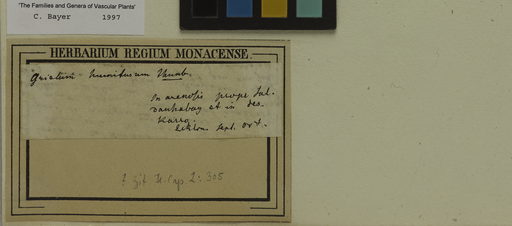 'The Families and Genera of Vascular Plants'
C. Bayer 1997
HERBARIUM REGIUM MONACENSE
Grielum humifusum Thunb.
In arenosis prope Sal-
danhabay et in des.
Karro.
Ecklon. Sept. Oct.
Fl. Cap 2: 305